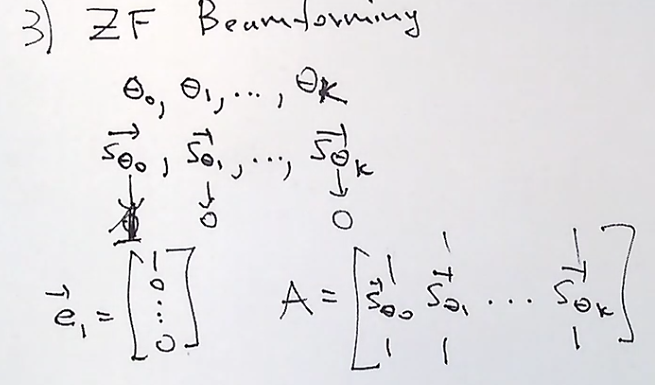 3) ZF Beamforming
θ₀, θ₁, ..., θK
s⃗θ₀, s⃗θ₁, ..., s⃗θK
↓ ↓ ↓
1 0 0
e⃗₁ = [1 0 ... 0] A = [s⃗θ₀ s⃗θ₁ ... s⃗θK]